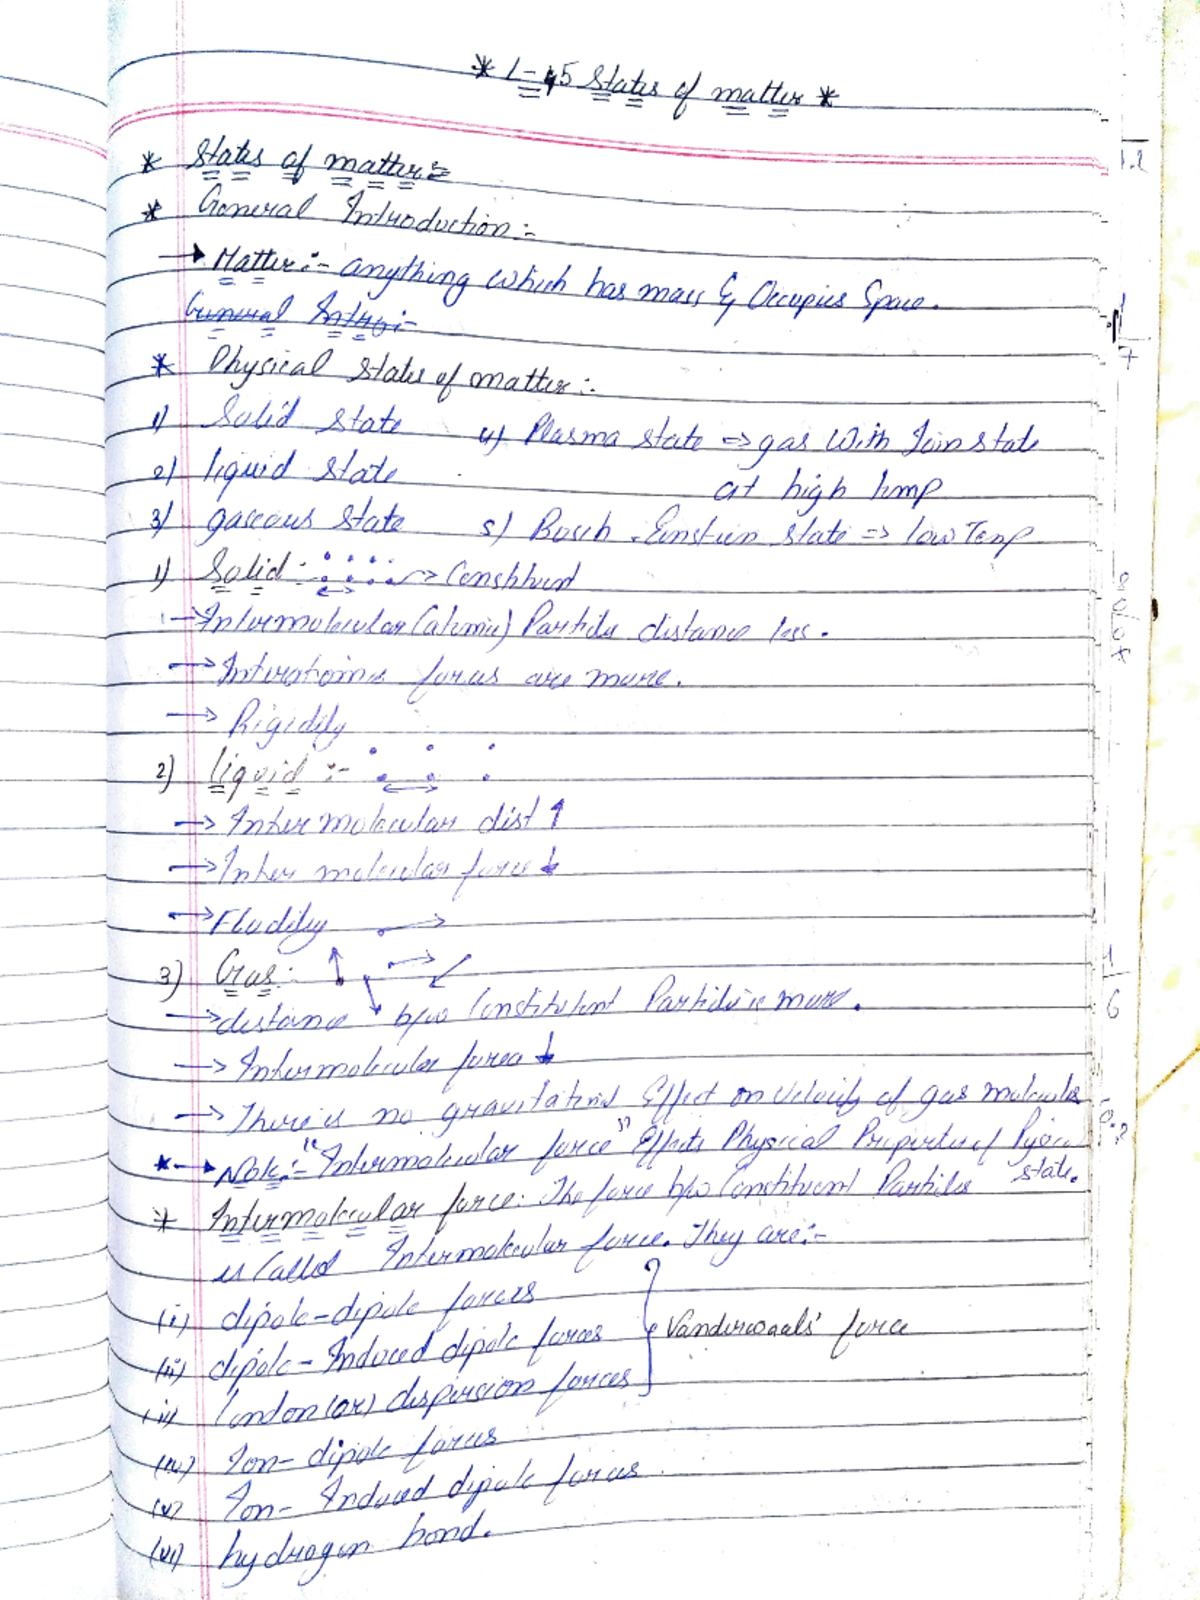 * L-5 States of matter *
* States of matter:-
* General Introduction:-
→ Matter:- anything which has mass & Occupies Space.
General Intro:-
* Physical States of matter:-
1) Solid state 4) Plasma state => gas With Ion state
2) liquid state at high temp
3) gaseous state 5) Bosch-Einstien state => low Temp
1) Solid:- → Constituent
→ Intermolecular (atomic) Particle distance less.
→ Interatomic forces are more.
→ Rigidity
2) liquid :-
→ Inter molecular dist ↑
→ Inter molecular force ↓
→ Fludity
3) Gas:-
→ distance b/w Constituent Particle is more.
→ Intermolecular force ↓
→ There is no gravitational Effect on Velocity of gas molecules
* → Note:- "Intermolecular force" Effects Physical Properties of
state.
* Intermolecular force: The force b/w Constituent Particles
is Called Intermolecular force. They are:-
(i) dipole-dipole forces
(ii) dipole-Induced dipole forces Vanderwaals' force
(iii) london (or) dispersion forces
(iv) Ion-dipole forces
(v) Ion-Induced dipole forces
(vi) hydrogen bond.